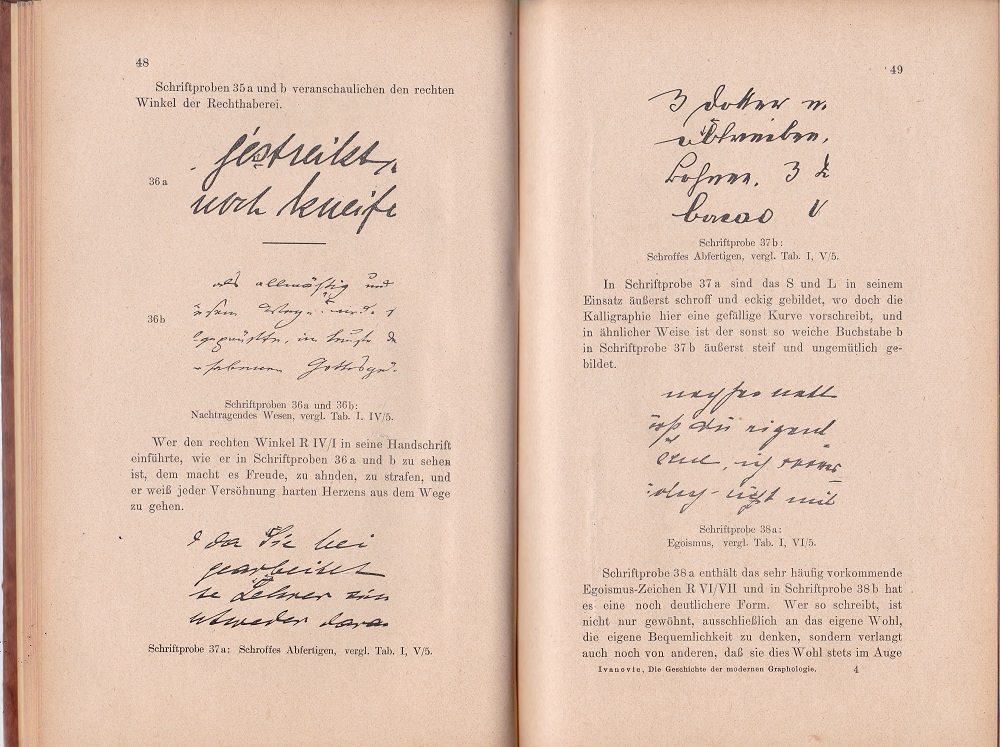 48
Schriftproben 35a und b veranschaulichen den rechten
Winkel der Rechthaberei.
gestreikt
36a
noch kneife
als allmächtig und
36b
Schriftproben 36a und 36b:
Nachtragendes Wesen, vergl. Tab. I. IV/5.
Wer den rechten Winkel R IV/I in seine Handschrift
einführte, wie er in Schriftproben 36a und b zu sehen
ist, dem macht es Freude, zu ahnden, zu strafen, und
er weiß jeder Versöhnung harten Herzens aus dem Wege
zu gehen.
da Sie bei
gearbeitet
te Lehrer ein
entweder daran
Schriftprobe 37a: Schroffes Abfertigen, vergl. Tab. I, V/5.
49
3 Dotter u.
abtreiben,
3
Schriftprobe 37b:
Schroffes Abfertigen, vergl. Tab. I, V/5.
In Schriftprobe 37a sind das S und L in seinem
Einsatz äußerst schroff und eckig gebildet, wo doch die
Kalligraphie hier eine gefällige Kurve vorschreibt, und
in ähnlicher Weise ist der sonst so weiche Buchstabe b
in Schriftprobe 37b äußerst steif und ungemütlich ge-
bildet.
daß du eigent
ich
nicht mit
Schriftprobe 38a:
Egoismus, vergl. Tab. I, VI/5.
Schriftprobe 38a enthält das sehr häufig vorkommende
Egoismus-Zeichen R VI/VII und in Schriftprobe 38b hat
es eine noch deutlichere Form. Wer so schreibt, ist
nicht nur gewöhnt, ausschließlich an das eigene Wohl,
die eigene Bequemlichkeit zu denken, sondern verlangt
auch noch von anderen, daß sie dies Wohl stets im Auge
Ivanovic, Die Geschichte der modernen Graphologie. 4